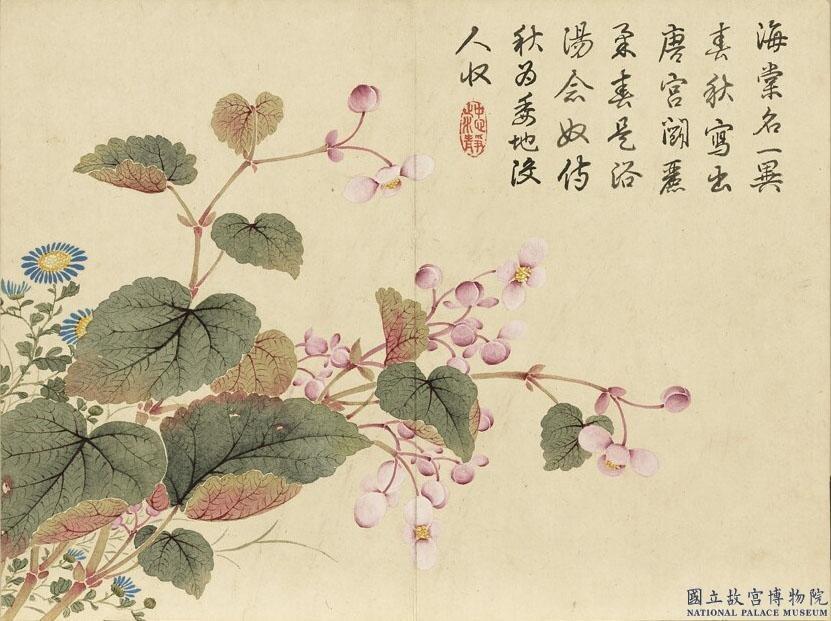 海棠名一異
春秋寫出
唐宮鬪麗
柔春是浴
湯念奴侍
秋為委地没
人収
國立故宮博物院
NATIONAL PALACE MUSEUM